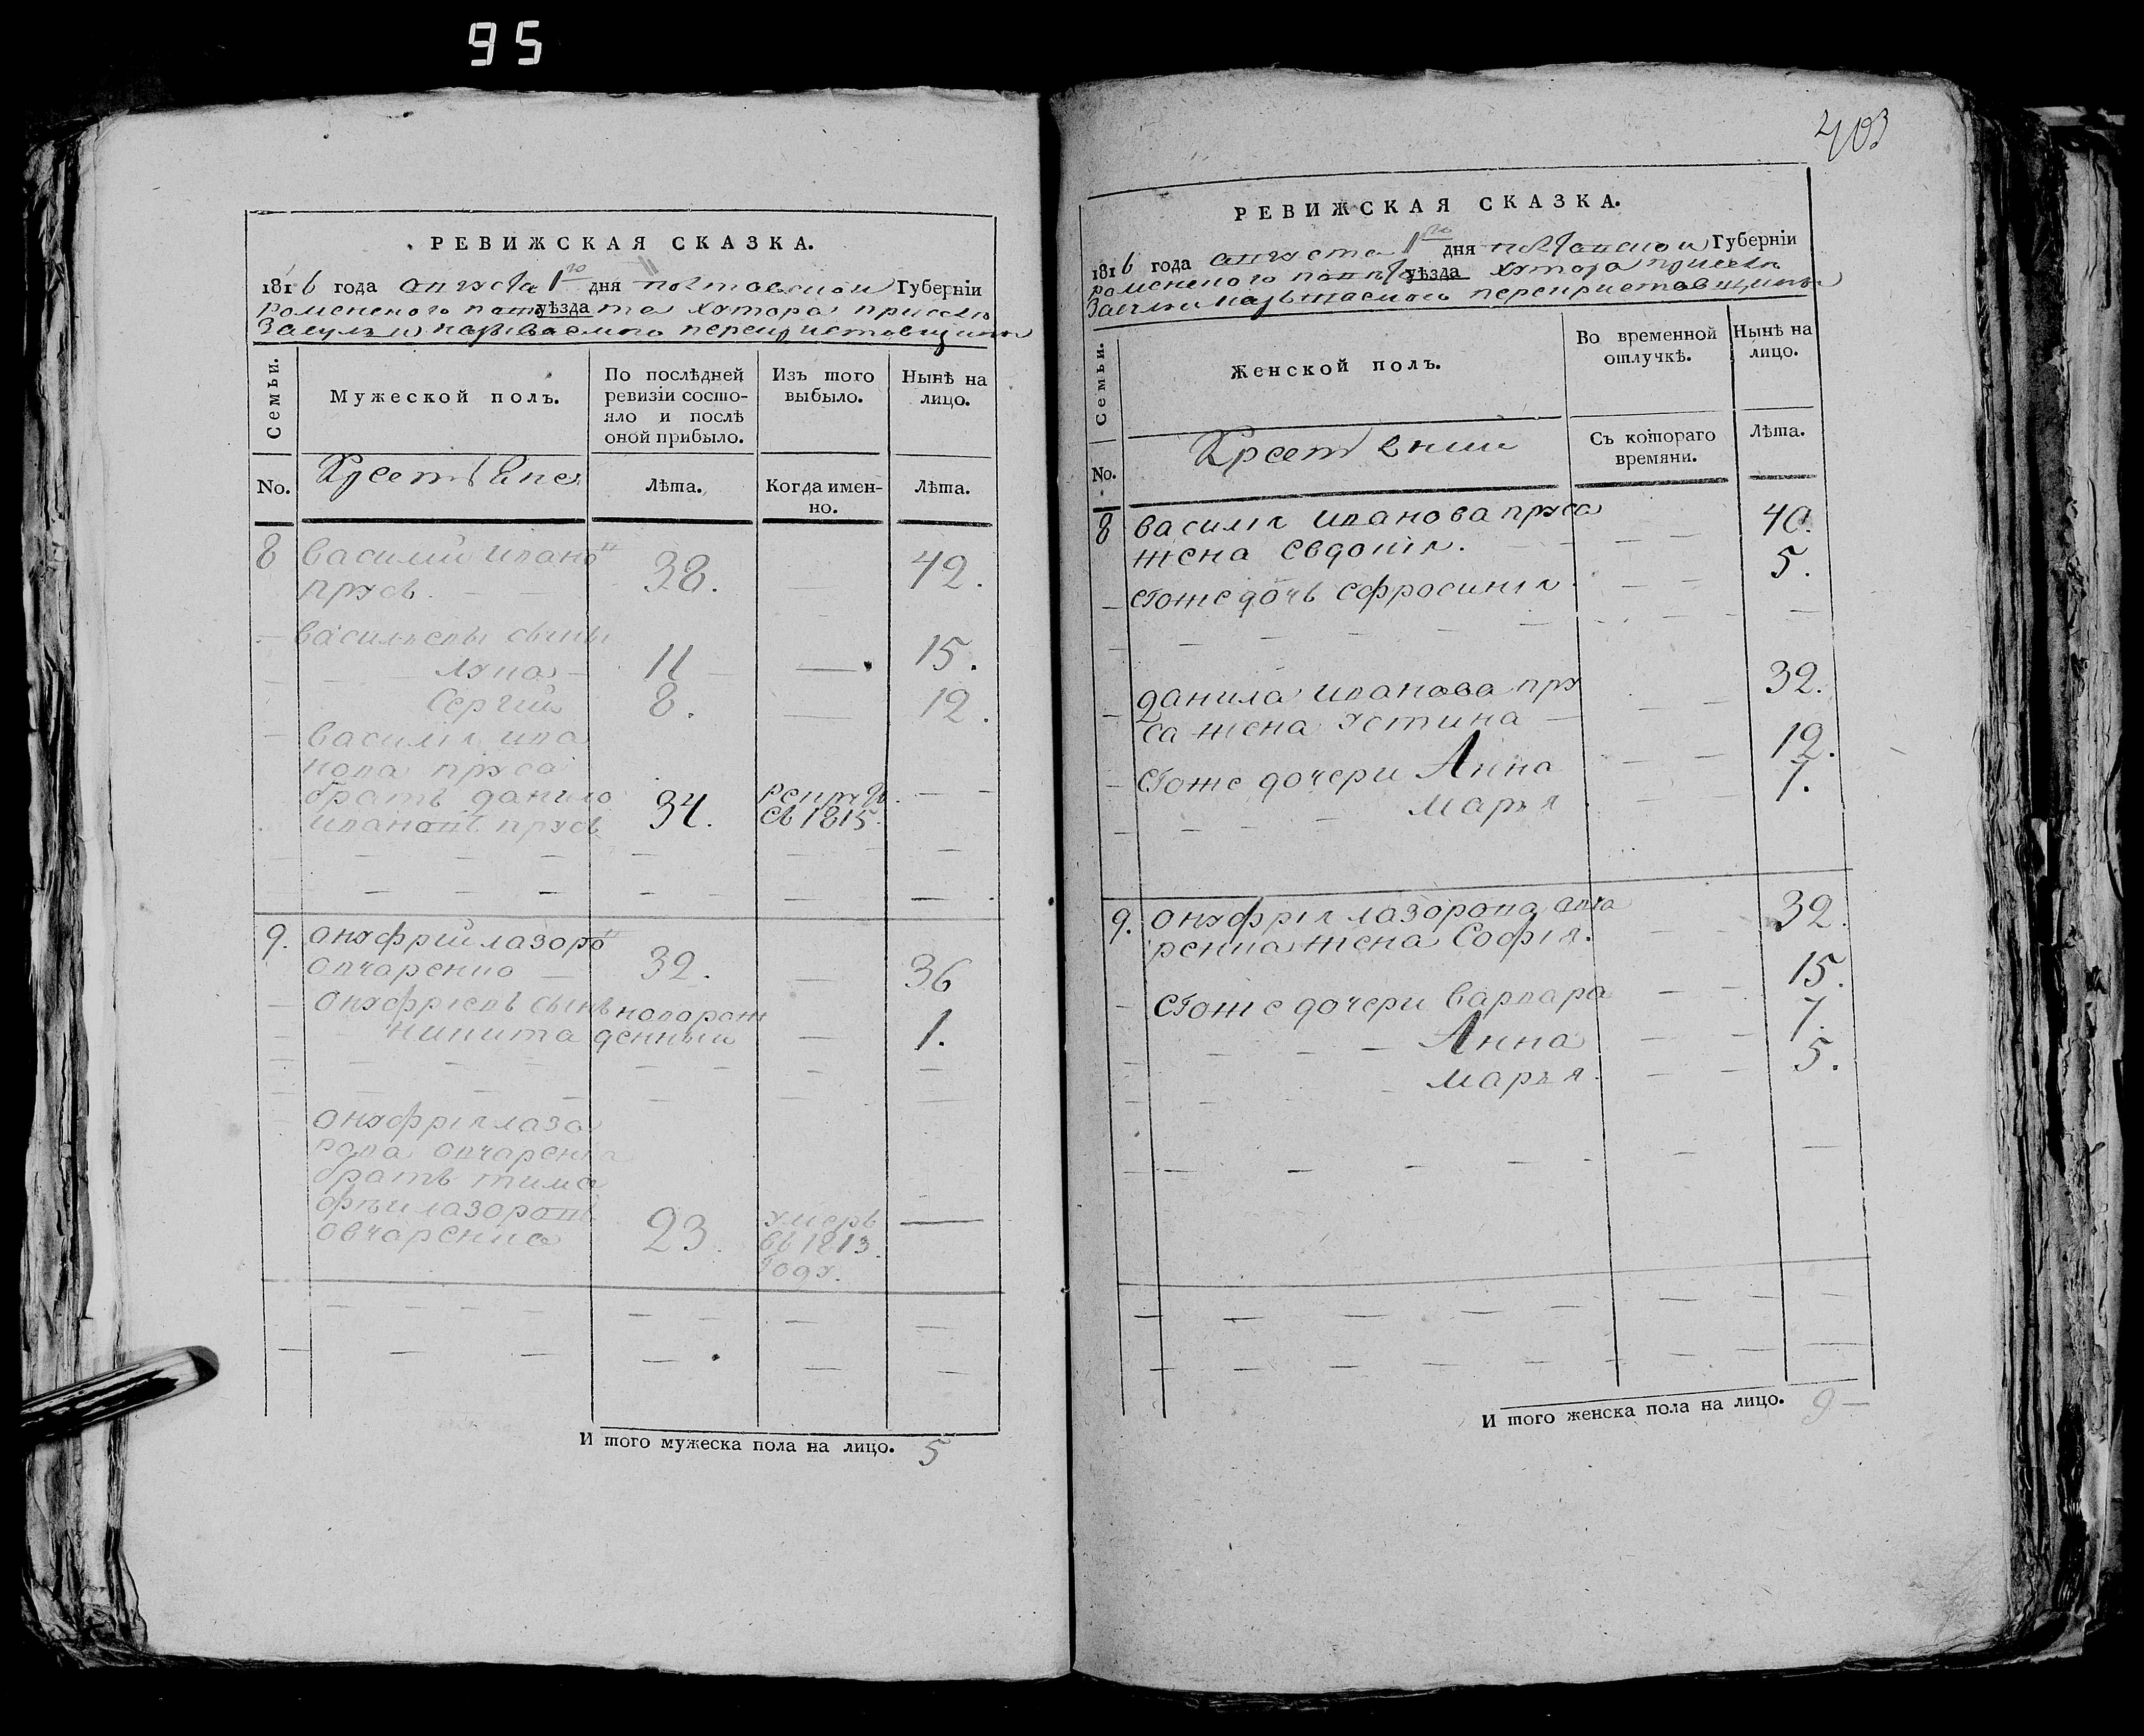 95
403
РЕВИЖСКАЯ СКАЗКА.
1816 года августа 1го дня полтавской Губерніи
роменского повѣта уѣзда хутора присел
Засулъя называемого
Семьи.
Мужеской полъ.
По послѣдней ревизіи состо-
яло и послѣ
оной прибыло.
Изъ того выбыло.
Нынѣ на лицо.
No.
Лѣта.
Когда имен-
но.
Лѣта.
8 василий ивановъ
прусъ. 38. — 42.
васильевы сыны
лука 11 — 15.
сергий 8. — 12.
василія ива
нова пруса
братъ данило
ивановъ прусъ 34. 1815.
9. онуфрий лазоровъ
овчаренко 32. — 36
онуфріевъ сынъ новорож
никита денный — 1.
онуфрія лазо
рова овчаренка
братъ тимо
фѣй лазоровъ
овчаренко 23. умеръ —
въ 1813
году.
И того мужеска пола на лицо. 5
РЕВИЖСКАЯ СКАЗКА.
1816 года августа 1го дня полтавской Губерніи
роменского повѣта уѣзда хутора присел
называемого
Семьи.
Женской полъ.
Во временной
отлучкѣ.
Нынѣ на
лицо.
No.
Съ котораго
времяни.
Лѣта.
8 василія иванова пруса
жена евдокія. 40.
его же дочь ефросинія. 5.
данила иванова пру
са жена устина 32.
его же дочери Анна 12.
марья 7.
9. онуфрія лазорова овча
ренка жена софія. 32.
его же дочери варвара 15.
Анна 7.
марья. 5.
И того женска пола на лицо. 9